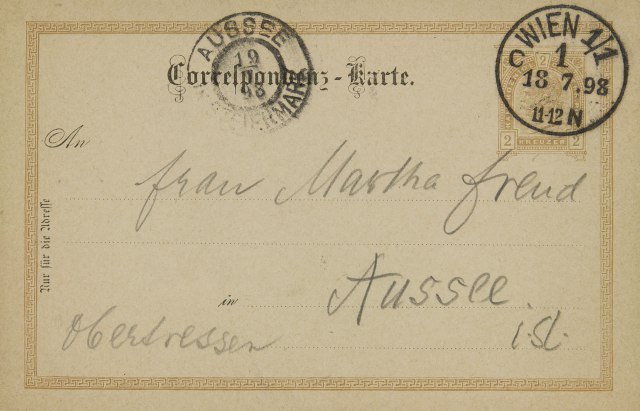 AUSSEE
19
98
STEIERMARK
WIEN 1/1
C 1
18 7.98
11-12 N
2
2 KREUZER 2
Correspondenz-Karte.
An
Frau Martha Freud
Nur für die Adresse
in Aussee.
Obertressen i. St.